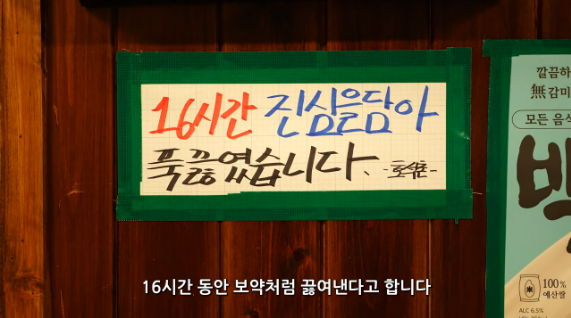 16시간 진심을담아
푹끓였습니다.
깔끔하
無감미
모든 음식
100%
예산쌀
ALC 6.5%
16시간 동안 보약처럼 끓여낸다고 합니다